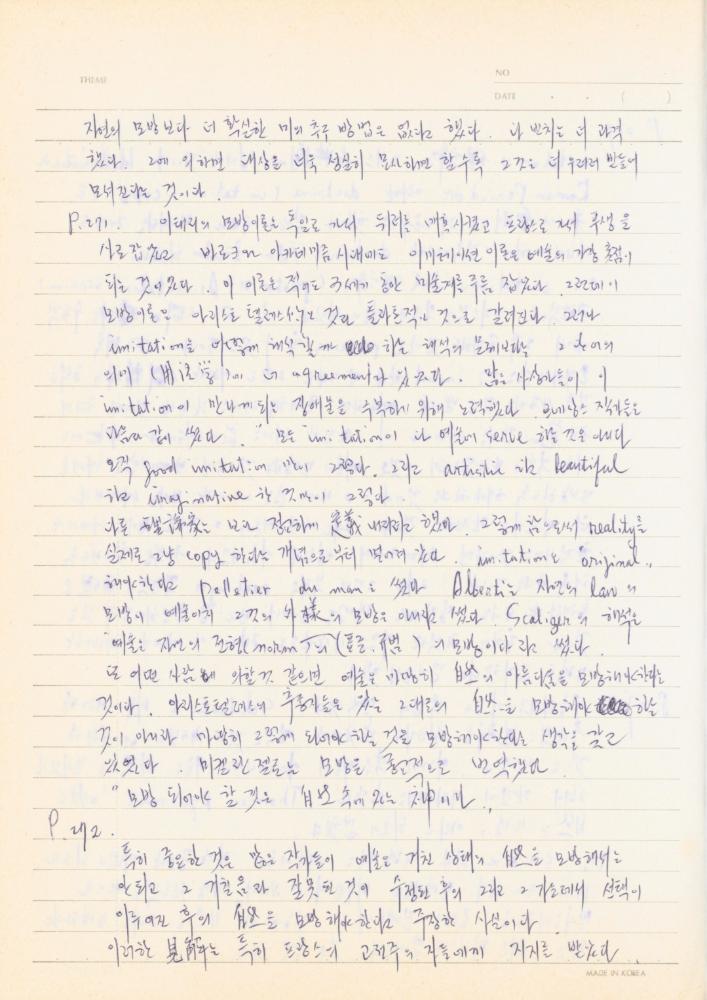 THEME
NO
DATE . . ( )
자연의 모방보다 더 확실한 미의 추구 방법은 없다고 했다. 다 빈치는 더 과격
했다. 그에 의하면 대상을 더욱 성실히 모사하면 할수록 그것은 더 우러러 만들어
모셔진다는 것이다.
P.271. 이태리의 모방이론은 독일로 가서 뒤러를 개혁시켰고 프랑스로 가서 푸생을
사로잡았고 바로크와 아카데미즘 시대에도 이미테이션 이론은 예술의 가장 초점이
되는 것이었다. 이 이론은 적어도 3세기 동안 미술계를 주름 잡았다. 그런데 이
모방이론은 아리스토텔레스적인 것과 플라톤적인 것으로 갈려진다. 그러나
imitation을 어떻게 해석할까 하는 해석의 문제보다는 단어의
의미 에 더 agreement가 있었다. 많은 사상가들이 이
imitation이 만나게 되는 장애물을 극복하기 위해 노력했다. 르네상스 작가들은
다음과 같이 썼다. "모든 imitation이 다 예술에 serve 하는 것은 아니다
오직 good imitation 만이 그렇다. 그리고 artistic 하고 beautiful
하고 imaginative 한 것만이 그렇다.
다른 는 보다 정확하게 定義 내리려고 했다. 그렇게 함으로써 reality를
실제로 그냥 copy 한다는 개념으로부터 멀어져 갔다. imitation은 "original"
해야한다고 Pelletier du man은 썼다 Alberti는 자연의 law의
모방이 예술이지 그것의 外樣의 모방은 아니라고 썼다 Scaliger의 해석은
예술은 자연의 전형(norm)의 (표준, 규범) 의 모방이다 라고 썼다.
또 어떤 사람에 의할 것 같으면 예술은 마땅히 自然의 아름다움을 모방해야 한다는
것이다. 아리스토텔레스의 추종자들은 있는 그대로의 自然을 모방해야 하는
것이 아니라 마땅히 그렇게 되어야 할 것을 모방해야 한다는 생각을 갖고
있었다. 미켈란젤로는 모방을 종교적으로 번역했다.
"모방 되어야 할 것은 自然 속에 있는 神이다."
P.272.
특히 중요한 것은 많은 작가들이 예술은 거친 상태의 自然을 모방해서는
안되고 그 거칠음과 잘못된 것이 수정된 후의 그리고 그 가운데서 선택이
이루어진 후의 自然을 모방해야 한다고 주장한 사실이다.
이러한 見解는 특히 프랑스의 고전주의자들에게 지지를 받았다.
MADE IN KOREA